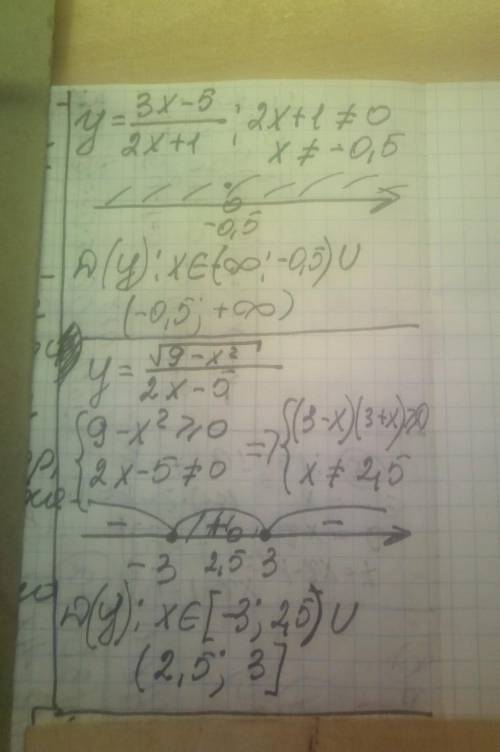 y = (3x-5)/(2x+1) ; 2x+1 ≠ 0
x ≠ -0,5
-0,5
D(y): x∈(-∞; -0,5)∪
(-0,5; +∞)
y = √(9-x²)/(2x-5)
{9-x² ≥ 0 => {(3-x)(3+x)≥0
{2x-5 ≠ 0 {x ≠ 2,5
- + -
-3 2,5 3
D(y): x∈[-3; 2,5)∪
(2,5; 3]